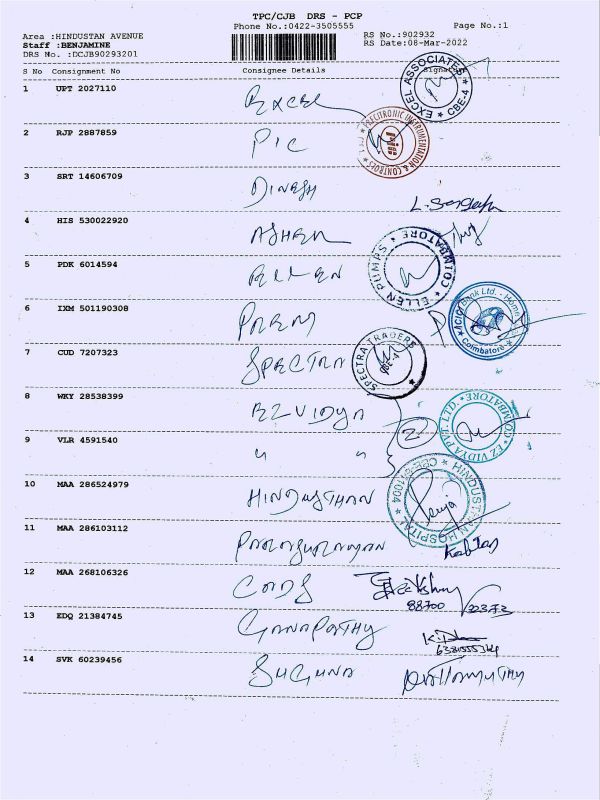 TPC/CJB DRS - PCP
Phone No.:0422-3505555
Page No.:1
Area :HINDUSTAN AVENUE
Staff :BENJAMINE
DRS No. :DCJB90293201
RS No.:902932
RS Date:08-Mar-2022
S No Consignment No Consignee Details Signature
EXCEL ASSOCIATES CBE-4
1 UPT 2027110 EXCEL
2 RJP 2887859 PIC
PRECITRONIC INSTRUMENTATION & CONTROLS
3 SRT 14606709 DINESH
4 HIS 530022920
5 PDK 6014594 ELLEN
ELLEN PUMPS COIMBATORE
6 IXM 501190308 PREM
ICICI Bank Ltd. Coimbatore
7 CUD 7207323 SPECTRA
SPECTRA TRADERS
8 WKY 28538399 EZVIDYA
2
EZ VIDYA PVT. LTD. COIMBATORE
9 VLR 4591540 " "
10 MAA 286524979 HINDUSTHAN
HINDUSTAN HOSPITAL
11 MAA 286103112
12 MAA 268106326
13 EDQ 21384745 GANAPATHY
14 SVK 60239456 SUGUNA